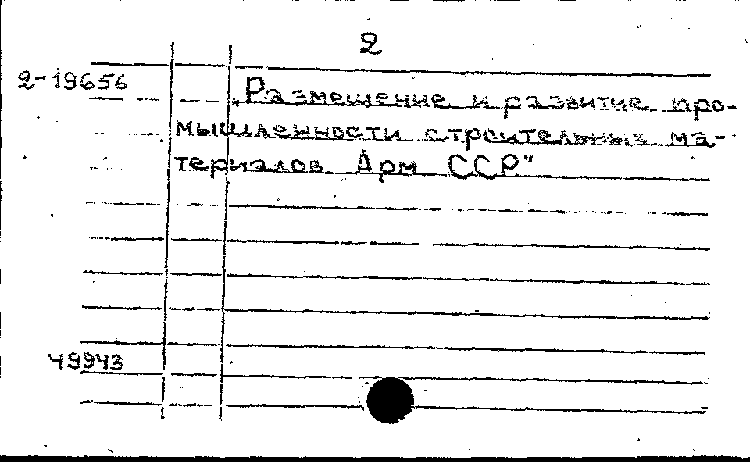 2
2-19656
„Размещение и развитие про-
мышленности строительных ма-
териалов Арм ССР"
49943